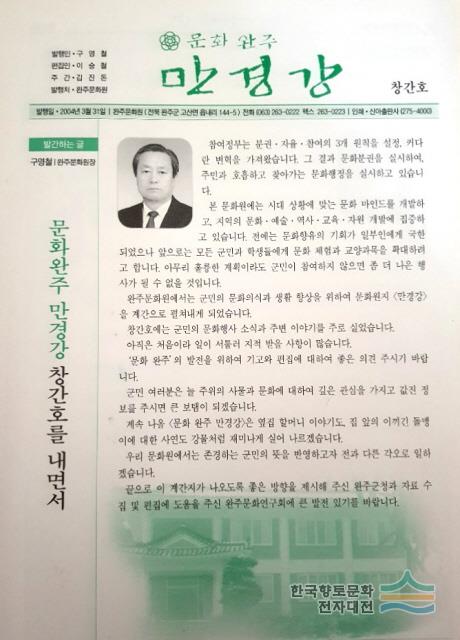 발행인·구 영 철
편집인·이 승 철
주 간·김 진 돈
발행처·완주문화원
문화 완주
만경강
창간호
발행일·2004년 3월 31일 | 완주문화원 (전북 완주군 고산면 읍내리 144-5) 전화 (063) 263-0222 팩스 263-0223 | 인쇄·신아출판사 (275-4000)
발간하는 글
구영철 | 완주문화원장
문화완주 만경강 창간호를 내면서
참여정부는 분권·자율·참여의 3개 원칙을 설정, 커다
란 변혁을 가져왔습니다. 그 결과 문화분권을 실시하여,
주민과 호흡하고 찾아가는 문화행정을 실시하고 있습니
다.
본 문화원에는 시대 상황에 맞는 문화 마인드를 개발하
고, 지역의 문화·예술·역사·교육·자원 개발에 집중하
고 있습니다. 전에는 문화향유의 기회가 일부인에게 국한
되었으나 앞으로는 모든 군민과 학생들에게 문화 체험과 교양과목을 확대하려
고 합니다. 아무리 훌륭한 계획이라도 군민이 참여하지 않으면 좀 더 나은 행
사가 될 수 없을 것입니다.
완주문화원에서는 군민의 문화의식과 생활 향상을 위하여 문화원지 〈만경강〉
을 계간으로 펼쳐내게 되었습니다.
창간호에는 군민의 문화행사 소식과 주변 이야기를 주로 실었습니다.
아직은 처음이라 일이 서툴러 지적 받을 사항이 많습니다.
'문화 완주'의 발전을 위하여 기고와 편집에 대하여 좋은 의견 주시기 바랍
니다.
군민 여러분은 늘 주위의 사물과 문화에 대하여 깊은 관심을 가지고 값진 정
보를 주시면 큰 보탬이 되겠습니다.
계속 나올 〈문화 완주 만경강〉은 옆집 할머니 이야기도, 집 앞의 이끼긴 돌맹
이에 대한 사연도 강물처럼 재미나게 실어 나르겠습니다.
우리 문화원에서는 존경하는 군민의 뜻을 반영하고자 전과 다른 각오로 일하
겠습니다.
끝으로 이 계간지가 나오도록 좋은 방향을 제시해 주신 완주군청과 자료 수
집 및 편집에 도움을 주신 완주문화연구회에 큰 발전 있기를 바랍니다.
한국향토문화
전자대전